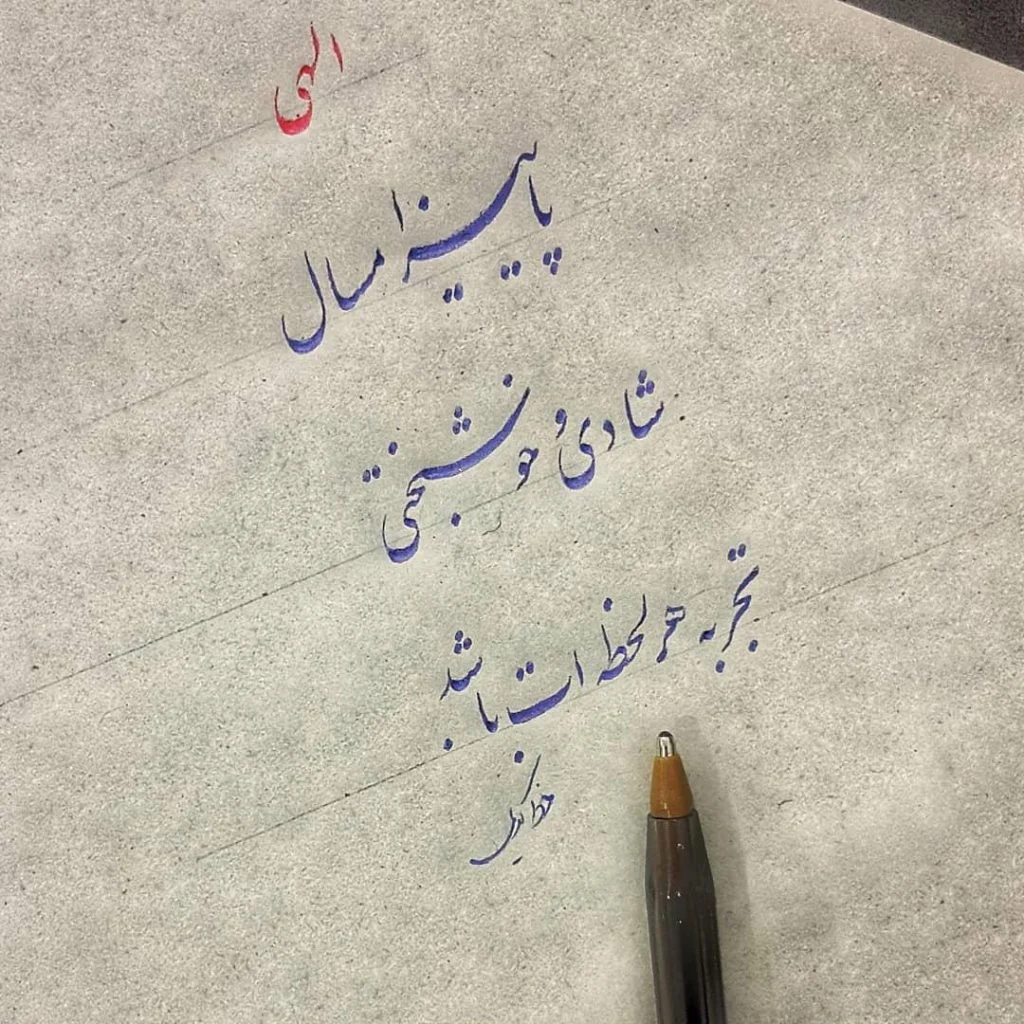 الهی
پاییز امسال
شادی و خوشبختی
تجربه هر لحظه ات باشد